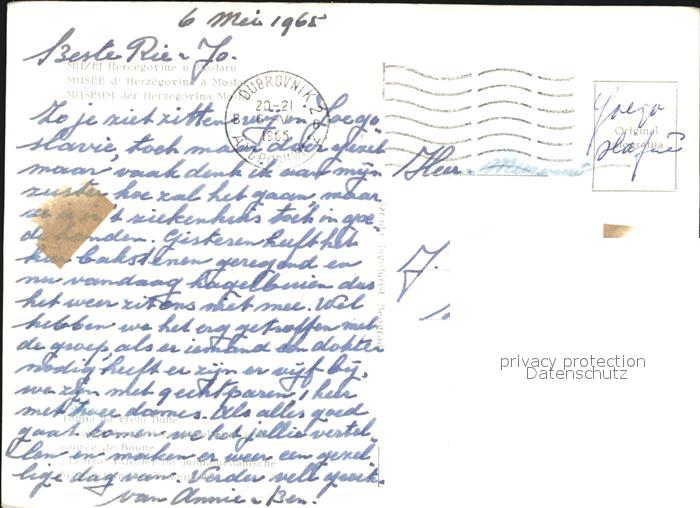 6 Mei 1965
Beste Rie - Jo.
MUZEJ Hercegovine u Mostaru
MUSÉE d' Herzégovina à Mostar
MUSEUM der Herzegovina
Zo je ziet zitten we in Joego
slavie, toch maar door gezet
maar vaak denk ik aan mijn
zuster hoe zal het gaan, maar
ze is in 't ziekenhuis toch in goe
de handen. Gisteren heeft het
bakstenen geregend en
nu vandaag hagelbuien dus
het weer zit ons niet mee. Wel
hebben we het erg getroffen met
de groep, als er iemand een dokter
nodig heeft er zijn er vijf bij,
we zijn met echtparen, 1 heer
met twee dames. Als alles goed
gaat komen we het jullie vertel
len en maken er weer een gezel
lige dag van. Verder veel
van Annie - Ben.
source de Boune
DUBROVNIK 2
20-21
6 V
1965
Heer
Joego
slavie
Original
J.
privacy protection
Datenschutz